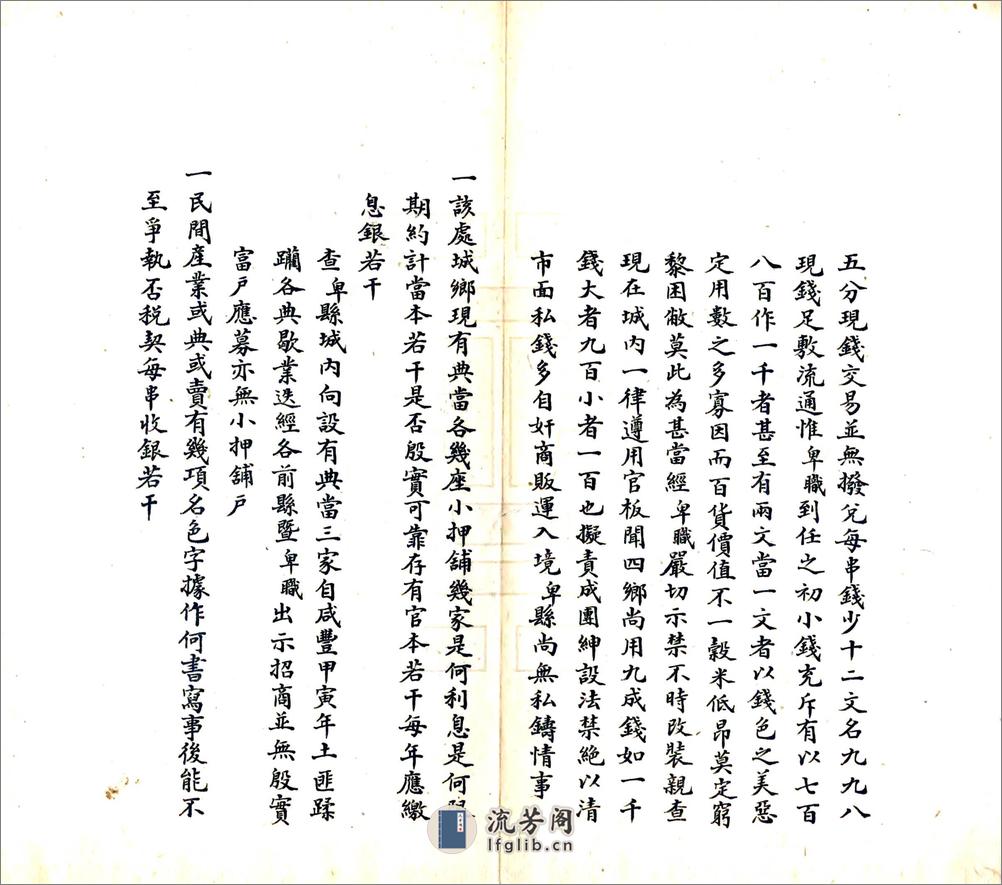 五分現錢交易並無撥兌每串錢少十二文名九九八
現錢足敷流通惟卑職到任之初小錢充斥有以七百
八百作一千者甚至有兩文當一文者以錢色之美惡
定用數之多寡因而百貨價值不一穀米低昂莫定窮
黎困敝莫此為甚當經卑職嚴切示禁不時改裝親查
現在城內一律遵用官板聞四鄉尚用九成錢如一千
錢大者九百小者一百也擬責成團紳設法禁絕以清
市面私錢多自奸商販運入境卑縣尚無私鑄情事
一該處城鄉現有典當各幾座小押舖幾家是何利息是何
期約計當本若干是否殷實可靠存有官本若干每年應繳
息銀若干
查卑縣城內向設有典當三家自咸豐甲寅年土匪蹂
躪各典歇業迭經各前縣暨卑職出示招商並無殷實
富戶應募亦無小押舖戶
一民間產業或典或賣有幾項名色字據作何書寫事後能不
至爭執否稅契每串收銀若干
流芳阁
lfglib.cn